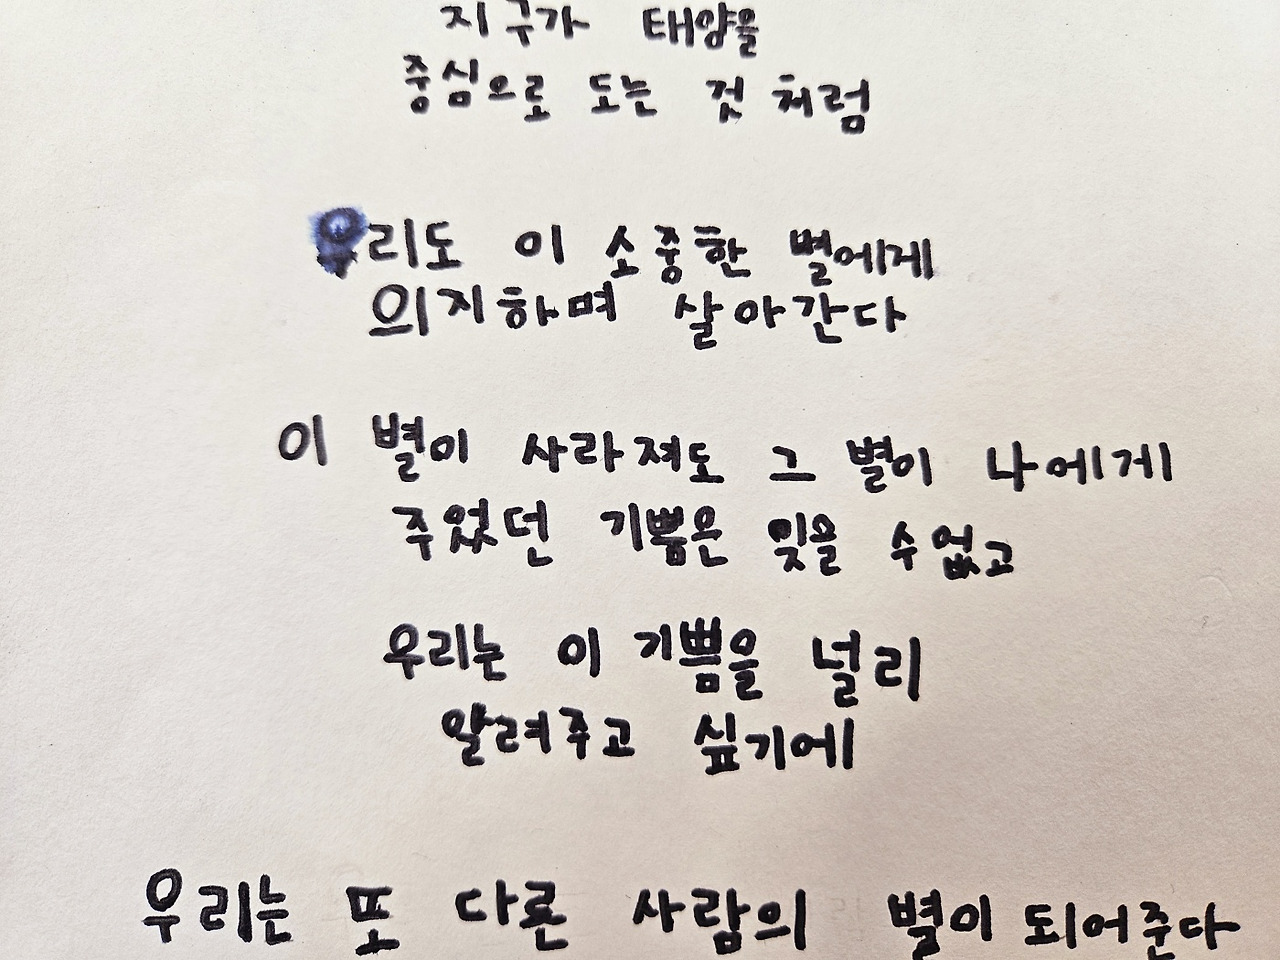 지구가 태양을
중심으로 도는 것 처럼
우리도 이 소중한 별에게
의지하며 살아간다
이 별이 사라져도 그 별이 나에게
주었던 기쁨은 잊을 수 없고
우리는 이 기쁨을 널리
알려주고 싶기에
우리는 또 다른 사람의 별이 되어준다